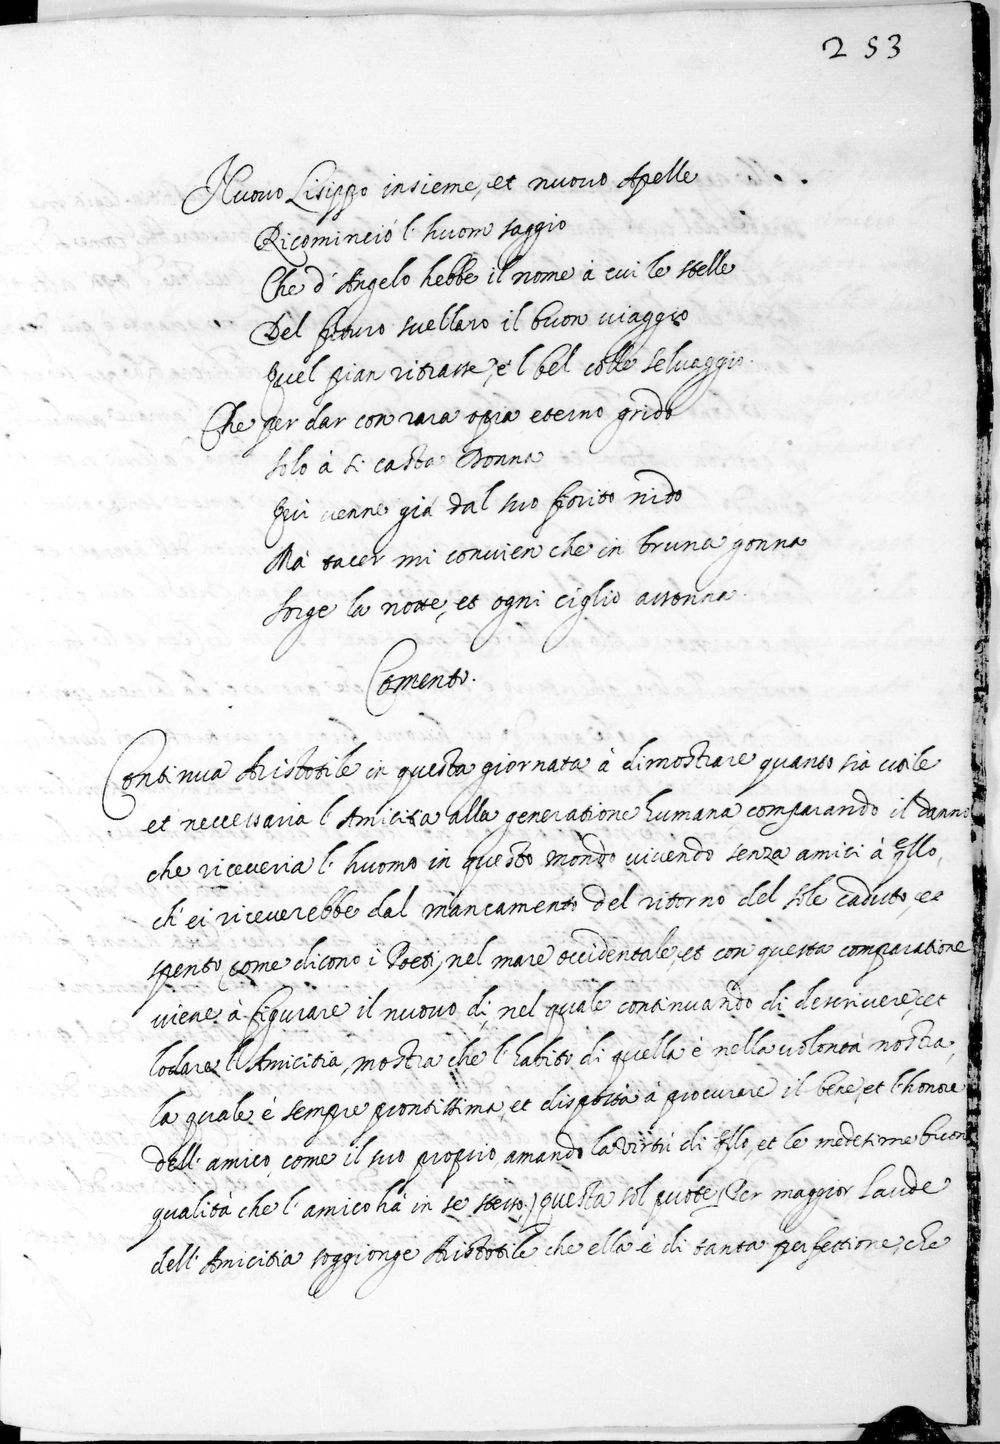 253
Nuouo Lisippo insieme, et nuouo Apelle
Ricominciò l'huom saggio
Che d'Angelo hebbe il nome à cui le stelle
Del futuro suellaro il buon uiaggio
Quel pian ritrasse, e'l bel colle seluaggio.
Che per dar con rara opra eterno grido
Solo à si casta Donna
Qui uenne già dal suo fiorito nido
Mà tacer mi conuien che in bruna gonna
Sorge la notte, et ogni ciglio assonna.
Comento.
Continua Aristotile in questa giornata à dimostrare quanto sia utile
et necessaria l'Amicitia alla generatione humana, comparando il danno
che riceueria l'huomo in questo mondo uiuendo senza amici à qllo,
ch'ei riceuerebbe dal mancamento del ritorno del sole caduto, et
spento, (come dicono i Poeti) nel mare occidentale, et con questa comparatione
uiene à figurare il nuouo dì, nel quale continuando di descriuere, et
lodare l'Amicitia, mostra che l'habito di quella è nella uolontà nostra,
la quale è sempre prontissima, et disposta à procurare il bene, et l'honore
dell'amico, come il suo proprio, amando la uirtù di qllo, et le medesime buone
qualità che l'amico hà in se stesso, (questa sol puote) Per maggior laude
dell'Amicitia soggionge Aristotile che ella è di tanta perfettione, che